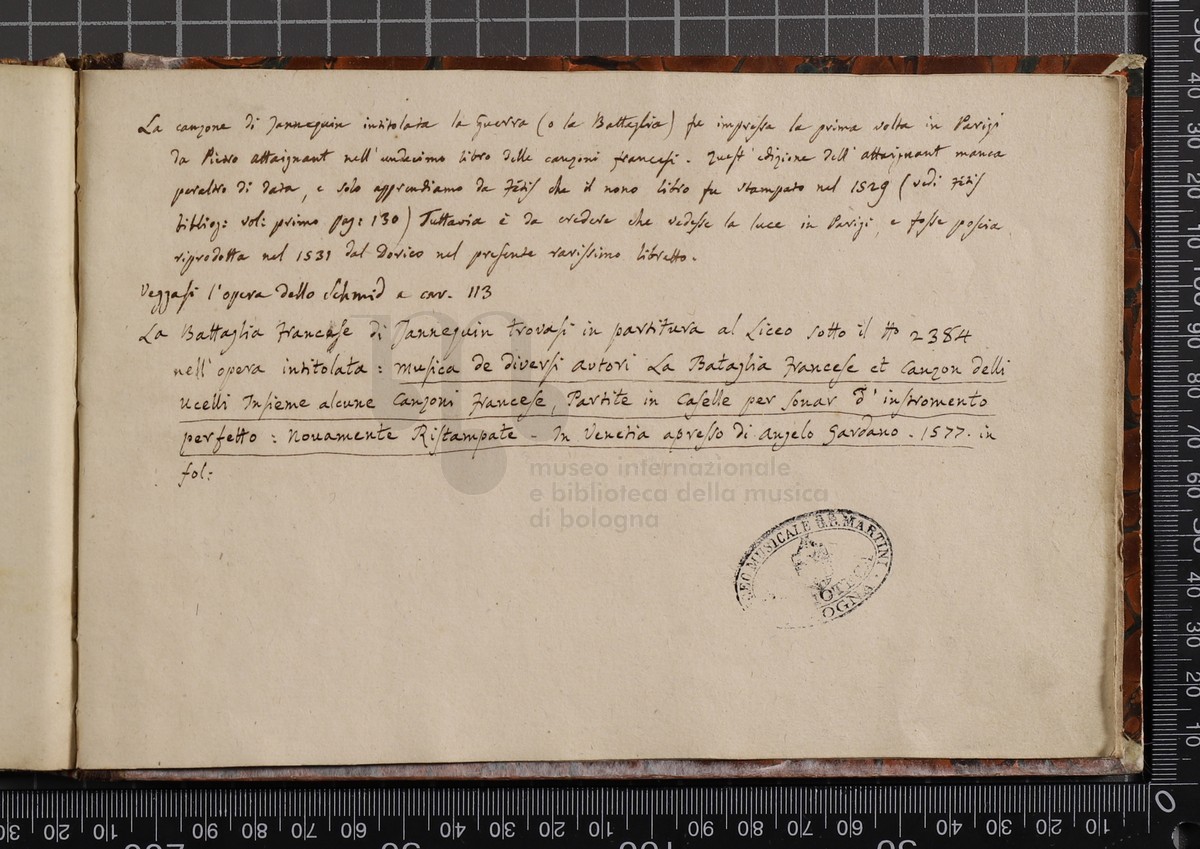 La canzone di Jannequin intitolata la Guerra (o la Battaglia) fu impressa la prima volta in Parigi
da Pietro attaignant nell'undecimo libro delle canzoni francesi. Quest'edizione dell'attaignant manca
peraltro di data, e solo apprendiamo da Fétis che il nono libro fu stampato nel 1529 (vedi Fétis
bibliog: vol: primo pag: 130) Tuttavia è da credere che vedesse la luce in Parigi, e fosse poscia
riprodotta nel 1531 dal Dorico nel presente rarissimo libretto.
Veggasi l'opera dello Schmid a car. 113
La Battaglia Francese di Jannequin trovasi in partitura al Liceo sotto il No 2384
nell'opera intitolata: Musica de diversi autori La Bataglia Francese et Canzon delli
Ucelli Insieme alcune Canzoni Francese, Partite in Caselle per sonar d'instromento
perfetto: Novamente Ristampate - In Venetia apresso di Angelo Gardano. 1577. in
fol:
museo internazionale
e biblioteca della musica
di bologna
MUSICALE G.B. MARTINI